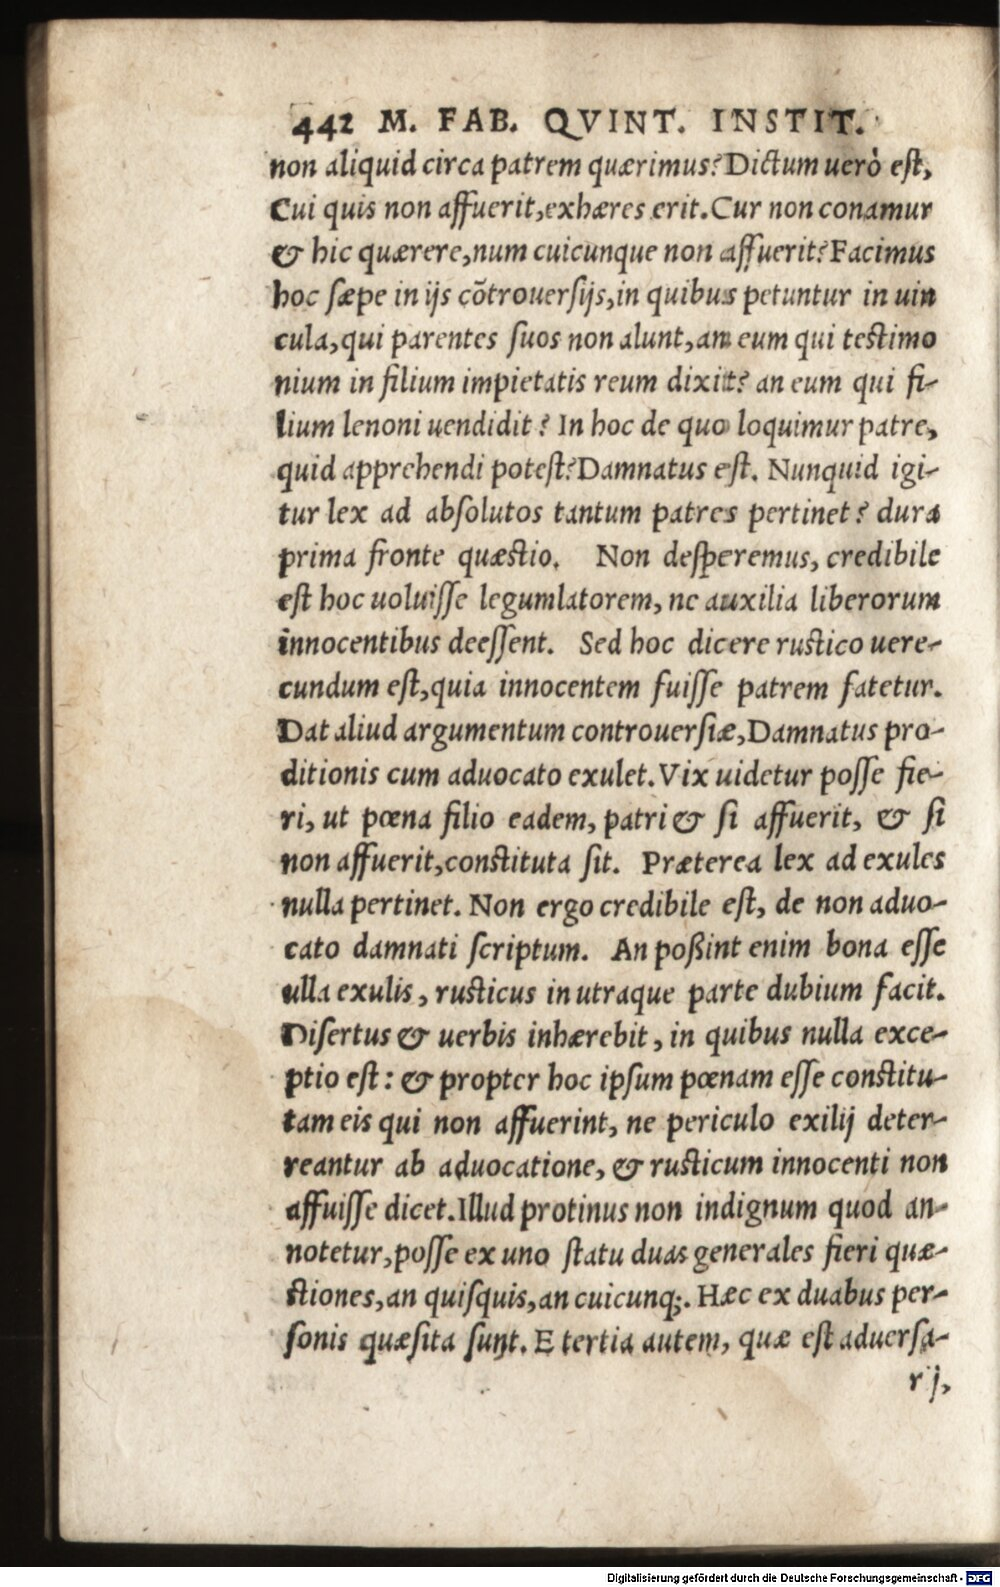 442 M. FAB. QVINT. INSTIT.
non aliquid circa patrem quærimus? Dictum uerò eſt,
Cui quis non affuerit, exhæres erit. Cur non conamur
& hic quærere, num cuicunque non affuerit? Facimus
hoc ſæpe in ijs cõtrouerſijs, in quibus petuntur in uin
cula, qui parentes ſuos non alunt, an eum qui teſtimo
nium in filium impietatis reum dixit? an eum qui fi-
lium lenoni uendidit? In hoc de quo loquimur patre,
quid apprehendi poteſt? Damnatus eſt. Nunquid igi-
tur lex ad abſolutos tantum patres pertinet? dura
prima fronte quæſtio. Non deſperemus, credibile
eſt hoc uoluiſſe legumlatorem, ne auxilia liberorum
innocentibus deeſſent. Sed hoc dicere ruſtico uere-
cundum eſt, quia innocentem fuiſſe patrem fatetur.
Dat aliud argumentum controuerſiæ, Damnatus pro-
ditionis cum aduocato exulet. Vix uidetur poſſe fie-
ri, ut pœna filio eadem, patri & ſi affuerit, & ſi
non affuerit, conſtituta ſit. Præterea lex ad exules
nulla pertinet. Non ergo credibile eſt, de non aduo-
cato damnati ſcriptum. An poßint enim bona eſſe
ulla exulis, ruſticus in utraque parte dubium facit.
Diſertus & uerbis inhærebit, in quibus nulla exce-
ptio eſt: & propter hoc ipſum pœnam eſſe conſtitu-
tam eis qui non affuerint, ne periculo exilij deter-
reantur ab aduocatione, & ruſticum innocenti non
affuiſſe dicet. Illud protinus non indignum quod an-
notetur, poſſe ex uno ſtatu duas generales fieri quæ-
ſtiones, an quiſquis, an cuicunq;. Hæc ex duabus per-
ſonis quæſita ſunt. E tertia autem, quæ eſt aduerſa-
rij,
Digitalisierung gefördert durch die Deutsche Forschungsgemeinschaft - DFG